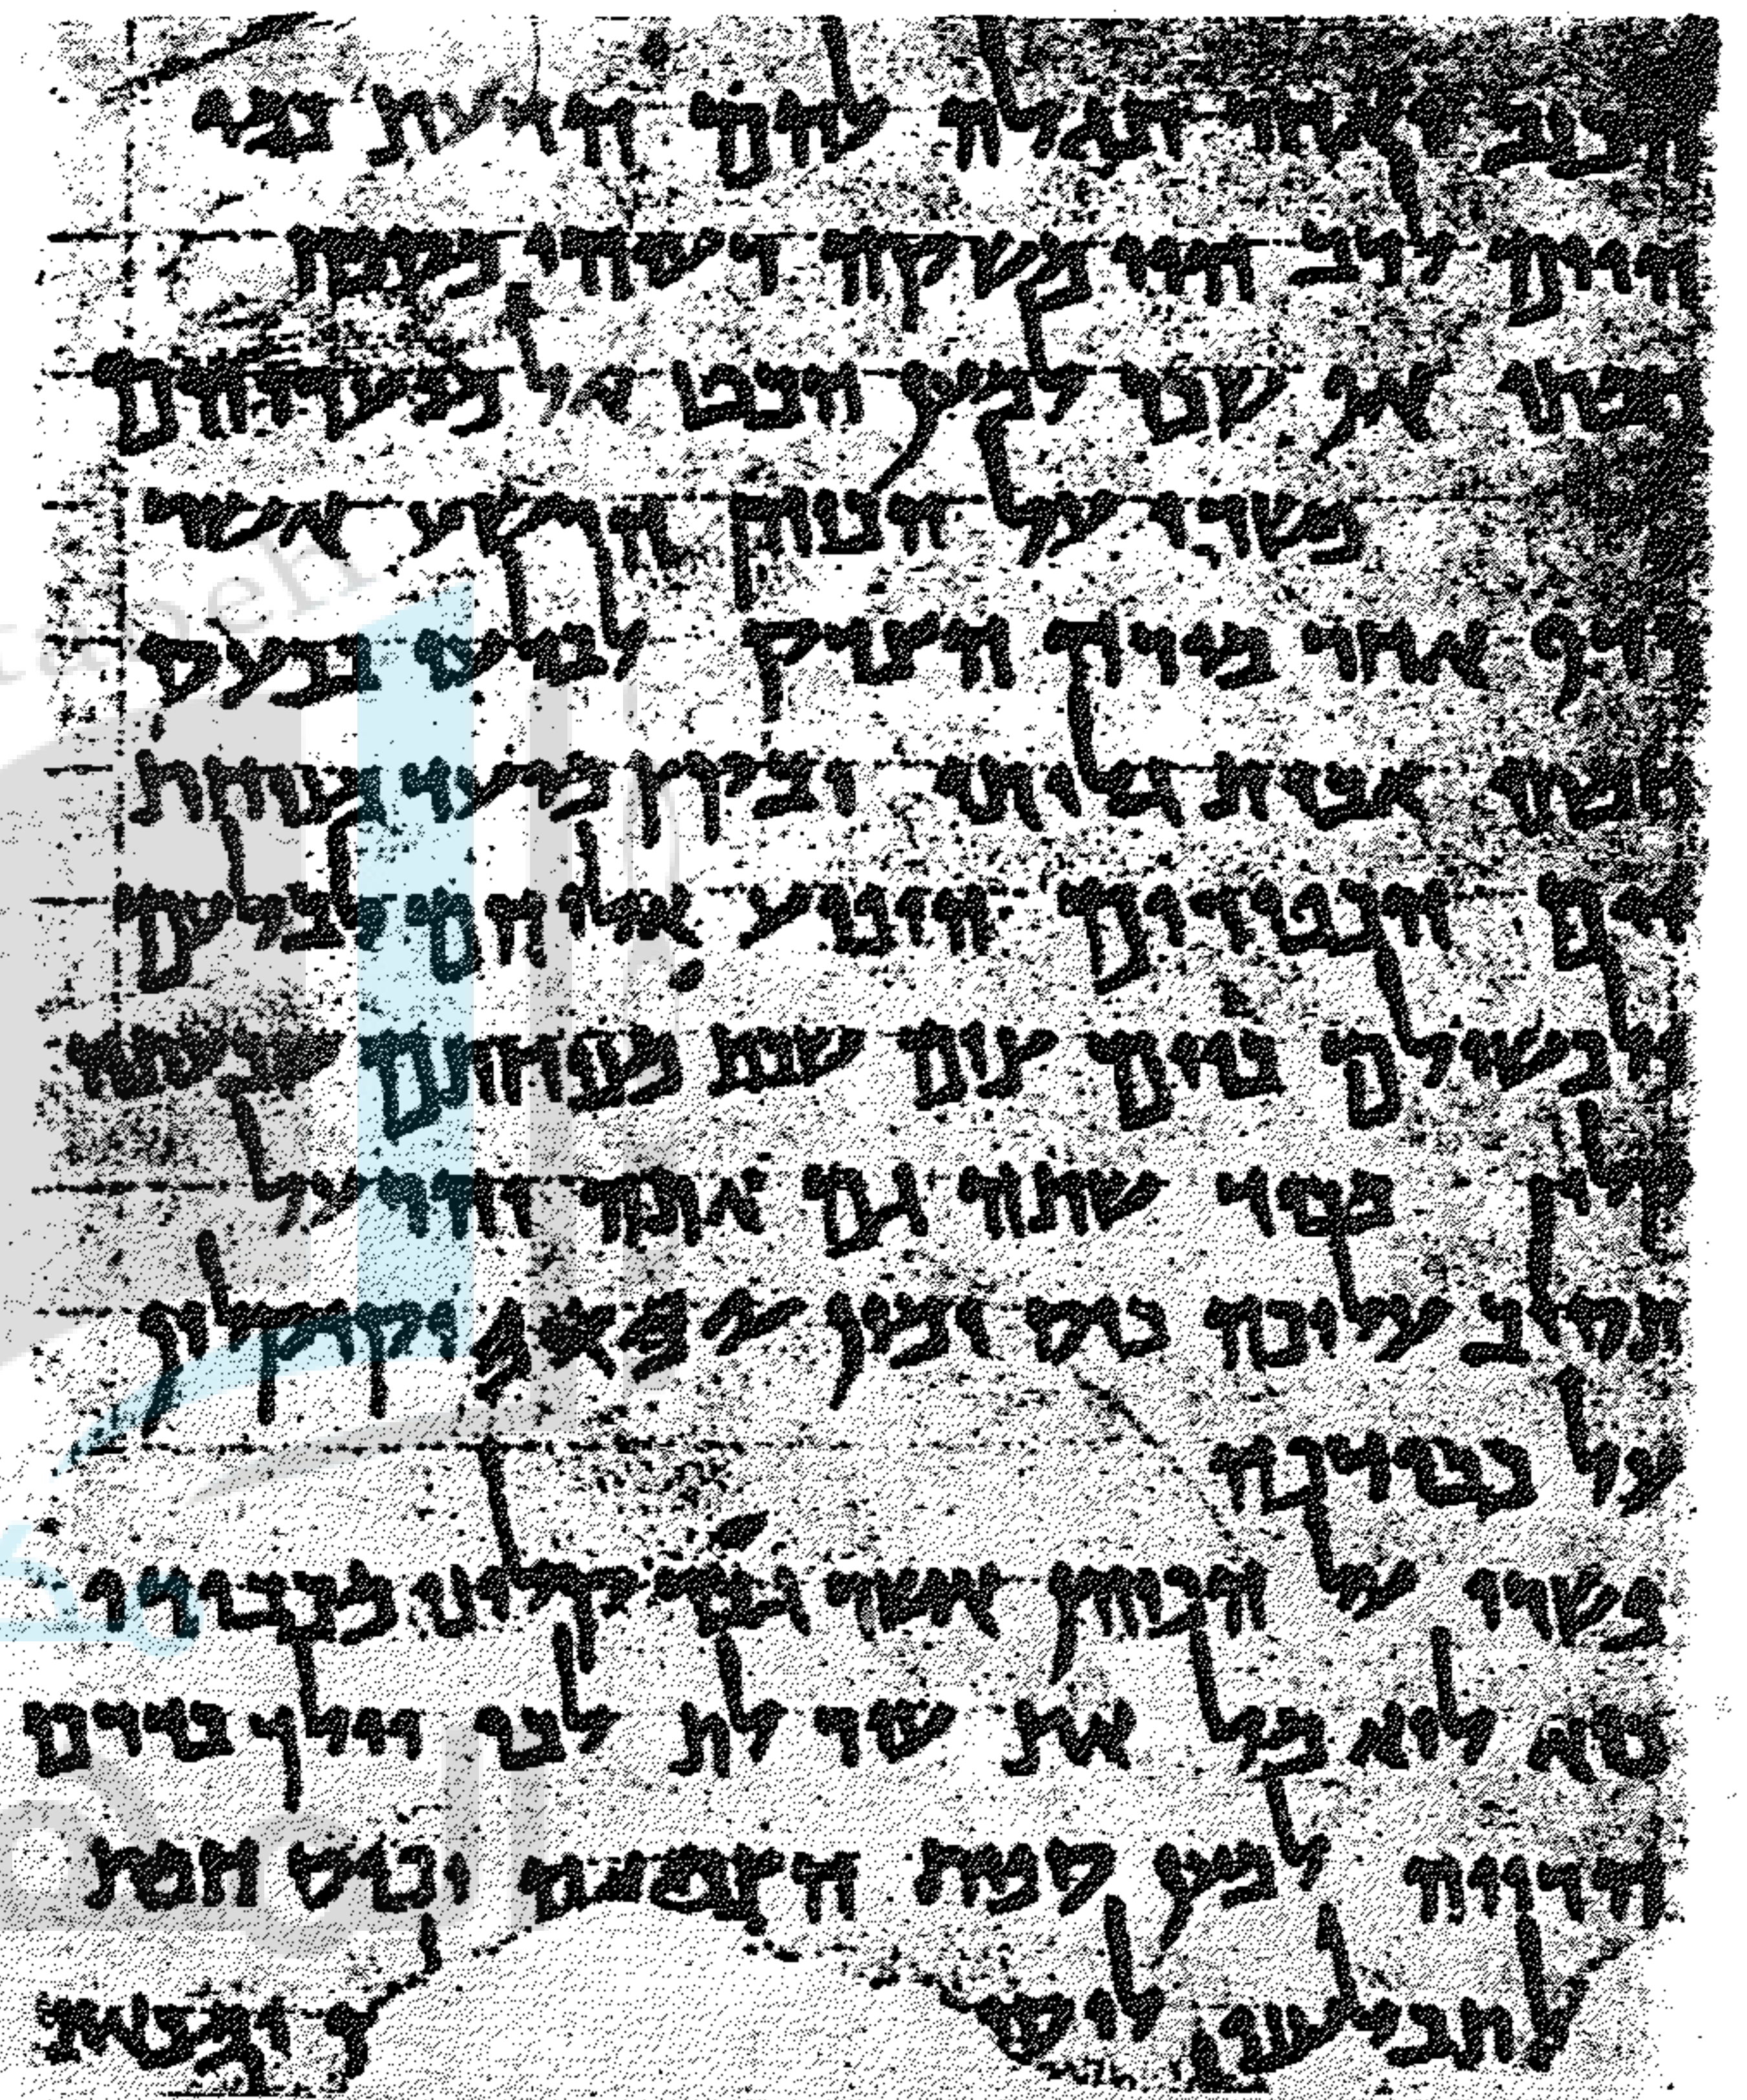 הכזב ואחר תגלה להם הדעת כמי
הים לרב הוי משקה רעיהו מספח
חמתו אף שכר למען הבט אל מועדיהם
פשרו על הכוהן הרשע אשר
רדף אחר מורה הצדק לבלעו בכעס
חמתו אבית גלותו ובקץ מועד מנוחת
יום הכפורים הופיע אליהם לבלעם
ולכשילם ביום צום שבת מנוחתם שבעתה
קלון מכבוד שתה גם אתה והרעל
תסוב עליכה כוס ימין 𐤉𐤄𐤅𐤄 וקיקלון
על כבודכה
פשרו על הכוהן אשר גבר קלונו מכבודו
כיא לוא מל את עורלת לבו וילך בדרכי
הרויה למען ספות הצמאה וכוס חמת
ל תבלענו לוסיף ומכאוב